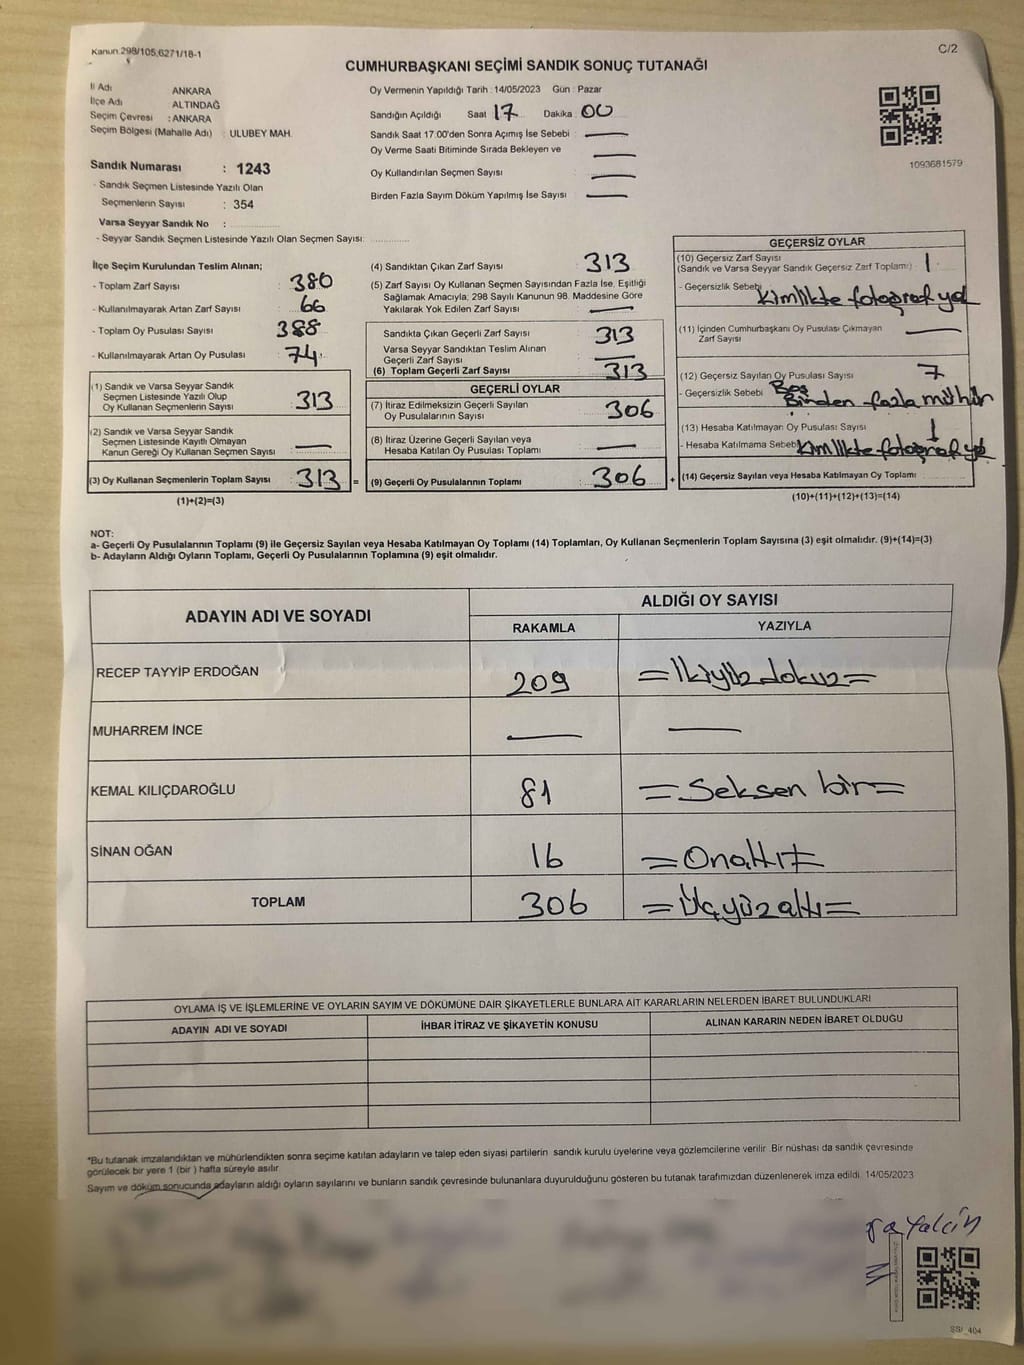 Kanun 298/105,6271/18-1
C/2
CUMHURBAŞKANI SEÇİMİ SANDIK SONUÇ TUTANAĞI
İl Adı ANKARA
İlçe Adı ALTINDAĞ
Seçim Çevresi : ANKARA
Seçim Bölgesi (Mahalle Adı) : ULUBEY MAH.
Sandık Numarası : 1243
- Sandık Seçmen Listesinde Yazılı Olan
Seçmenlerin Sayısı : 354
Varsa Seyyar Sandık No :
- Seyyar Sandık Seçmen Listesinde Yazılı Olan Seçmen Sayısı:
Oy Vermenin Yapıldığı Tarih : 14/05/2023 Gün : Pazar
Sandığın Açıldığı Saat 17 Dakika : 00
Sandık Saat 17:00'den Sonra Açımış İse Sebebi : —
Oy Verme Saati Bitiminde Sırada Bekleyen ve —
Oy Kullandırılan Seçmen Sayısı : —
Birden Fazla Sayım Döküm Yapılmış İse Sayısı : —
1093681579
İlçe Seçim Kurulundan Teslim Alınan;
- Toplam Zarf Sayısı 380
- Kullanılmayarak Artan Zarf Sayısı 66
- Toplam Oy Pusulası Sayısı 388
- Kullanılmayarak Artan Oy Pusulası 74
(1) Sandık ve Varsa Seyyar Sandık
Seçmen Listesinde Yazılı Olup
Oy Kullanan Seçmenlerin Sayısı 313
(2) Sandık ve Varsa Seyyar Sandık
Seçmen Listesinde Kayıtlı Olmayan
Kanun Gereği Oy Kullanan Seçmen Sayısı —
(3) Oy Kullanan Seçmenlerin Toplam Sayısı 313 =
(1)+(2)=(3)
(4) Sandıktan Çıkan Zarf Sayısı 313
(5) Zarf Sayısı Oy Kullanan Seçmen Sayısından Fazla İse, Eşitliği
Sağlamak Amacıyla; 298 Sayılı Kanunun 98. Maddesine Göre
Yakılarak Yok Edilen Zarf Sayısı —
Sandıkta Çıkan Geçerli Zarf Sayısı 313
Varsa Seyyar Sandıktan Teslim Alınan
Geçerli Zarf Sayısı —
(6) Toplam Geçerli Zarf Sayısı 313
GEÇERLİ OYLAR
(7) İtiraz Edilmeksizin Geçerli Sayılan
Oy Pusulalarının Sayısı 306
(8) İtiraz Üzerine Geçerli Sayılan veya
Hesaba Katılan Oy Pusulaları Toplamı —
(9) Geçerli Oy Pusulalarının Toplamı 306 +
GEÇERSİZ OYLAR
(10) Geçersiz Zarf Sayısı
(Sandık ve Varsa Seyyar Sandık Geçersiz Zarf Toplamı) : 1
- Geçersizlik Sebebi Kimlikte fotoğraf yok
(11) İçinden Cumhurbaşkanı Oy Pusulası Çıkmayan
Zarf Sayısı —
(12) Geçersiz Sayılan Oy Pusulası Sayısı 7
- Geçersizlik Sebebi Boş
Birden fazla mühür
(13) Hesaba Katılmayan Oy Pusulası Sayısı 1
- Hesaba Katılmama Sebebi Kimlikte fotoğraf yok
(14) Geçersiz Sayılan veya Hesaba Katılmayan Oy Toplamı
(10)+(11)+(12)+(13)=(14)
NOT:
a- Geçerli Oy Pusulalarının Toplamı (9) ile Geçersiz Sayılan veya Hesaba Katılmayan Oy Toplamı (14) Toplamları, Oy Kullanan Seçmenlerin Toplam Sayısına (3) eşit olmalıdır. (9)+(14)=(3)
b- Adayların Aldığı Oyların Toplamı, Geçerli Oy Pusulalarının Toplamına (9) eşit olmalıdır.
ADAYIN ADI VE SOYADI
ALDIĞI OY SAYISI
RAKAMLA YAZIYLA
RECEP TAYYİP ERDOĞAN 209 =İkiyüzdokuz=
MUHARREM İNCE — —
KEMAL KILIÇDAROĞLU 81 =Seksen bir=
SİNAN OĞAN 16 =Onaltı=
TOPLAM 306 =Üçyüzaltı=
OYLAMA İŞ VE İŞLEMLERİNE VE OYLARIN SAYIM VE DÖKÜMÜNE DAİR ŞİKAYETLERLE BUNLARA AİT KARARLARIN NELERDEN İBARET BULUNDUKLARI
ADAYIN ADI VE SOYADI İHBAR İTİRAZ VE ŞİKAYETİN KONUSU ALINAN KARARIN NEDEN İBARET OLDUĞU
*Bu tutanak imzalandıktan ve mühürlendikten sonra seçime katılan adayların ve talep eden siyasi partilerin sandık kurulu üyelerine veya gözlemcilerine verilir. Bir nüshası da sandık çevresinde
görülecek bir yere 1 (bir) hafta süreyle asılır.
Sayım ve döküm sonucunda adayların aldığı oyların sayılarını ve bunların sandık çevresinde bulunanlara duyurulduğunu gösteren bu tutanak tarafımızdan düzenlenerek imza edildi. 14/05/2023
Yalçın
SSI_404